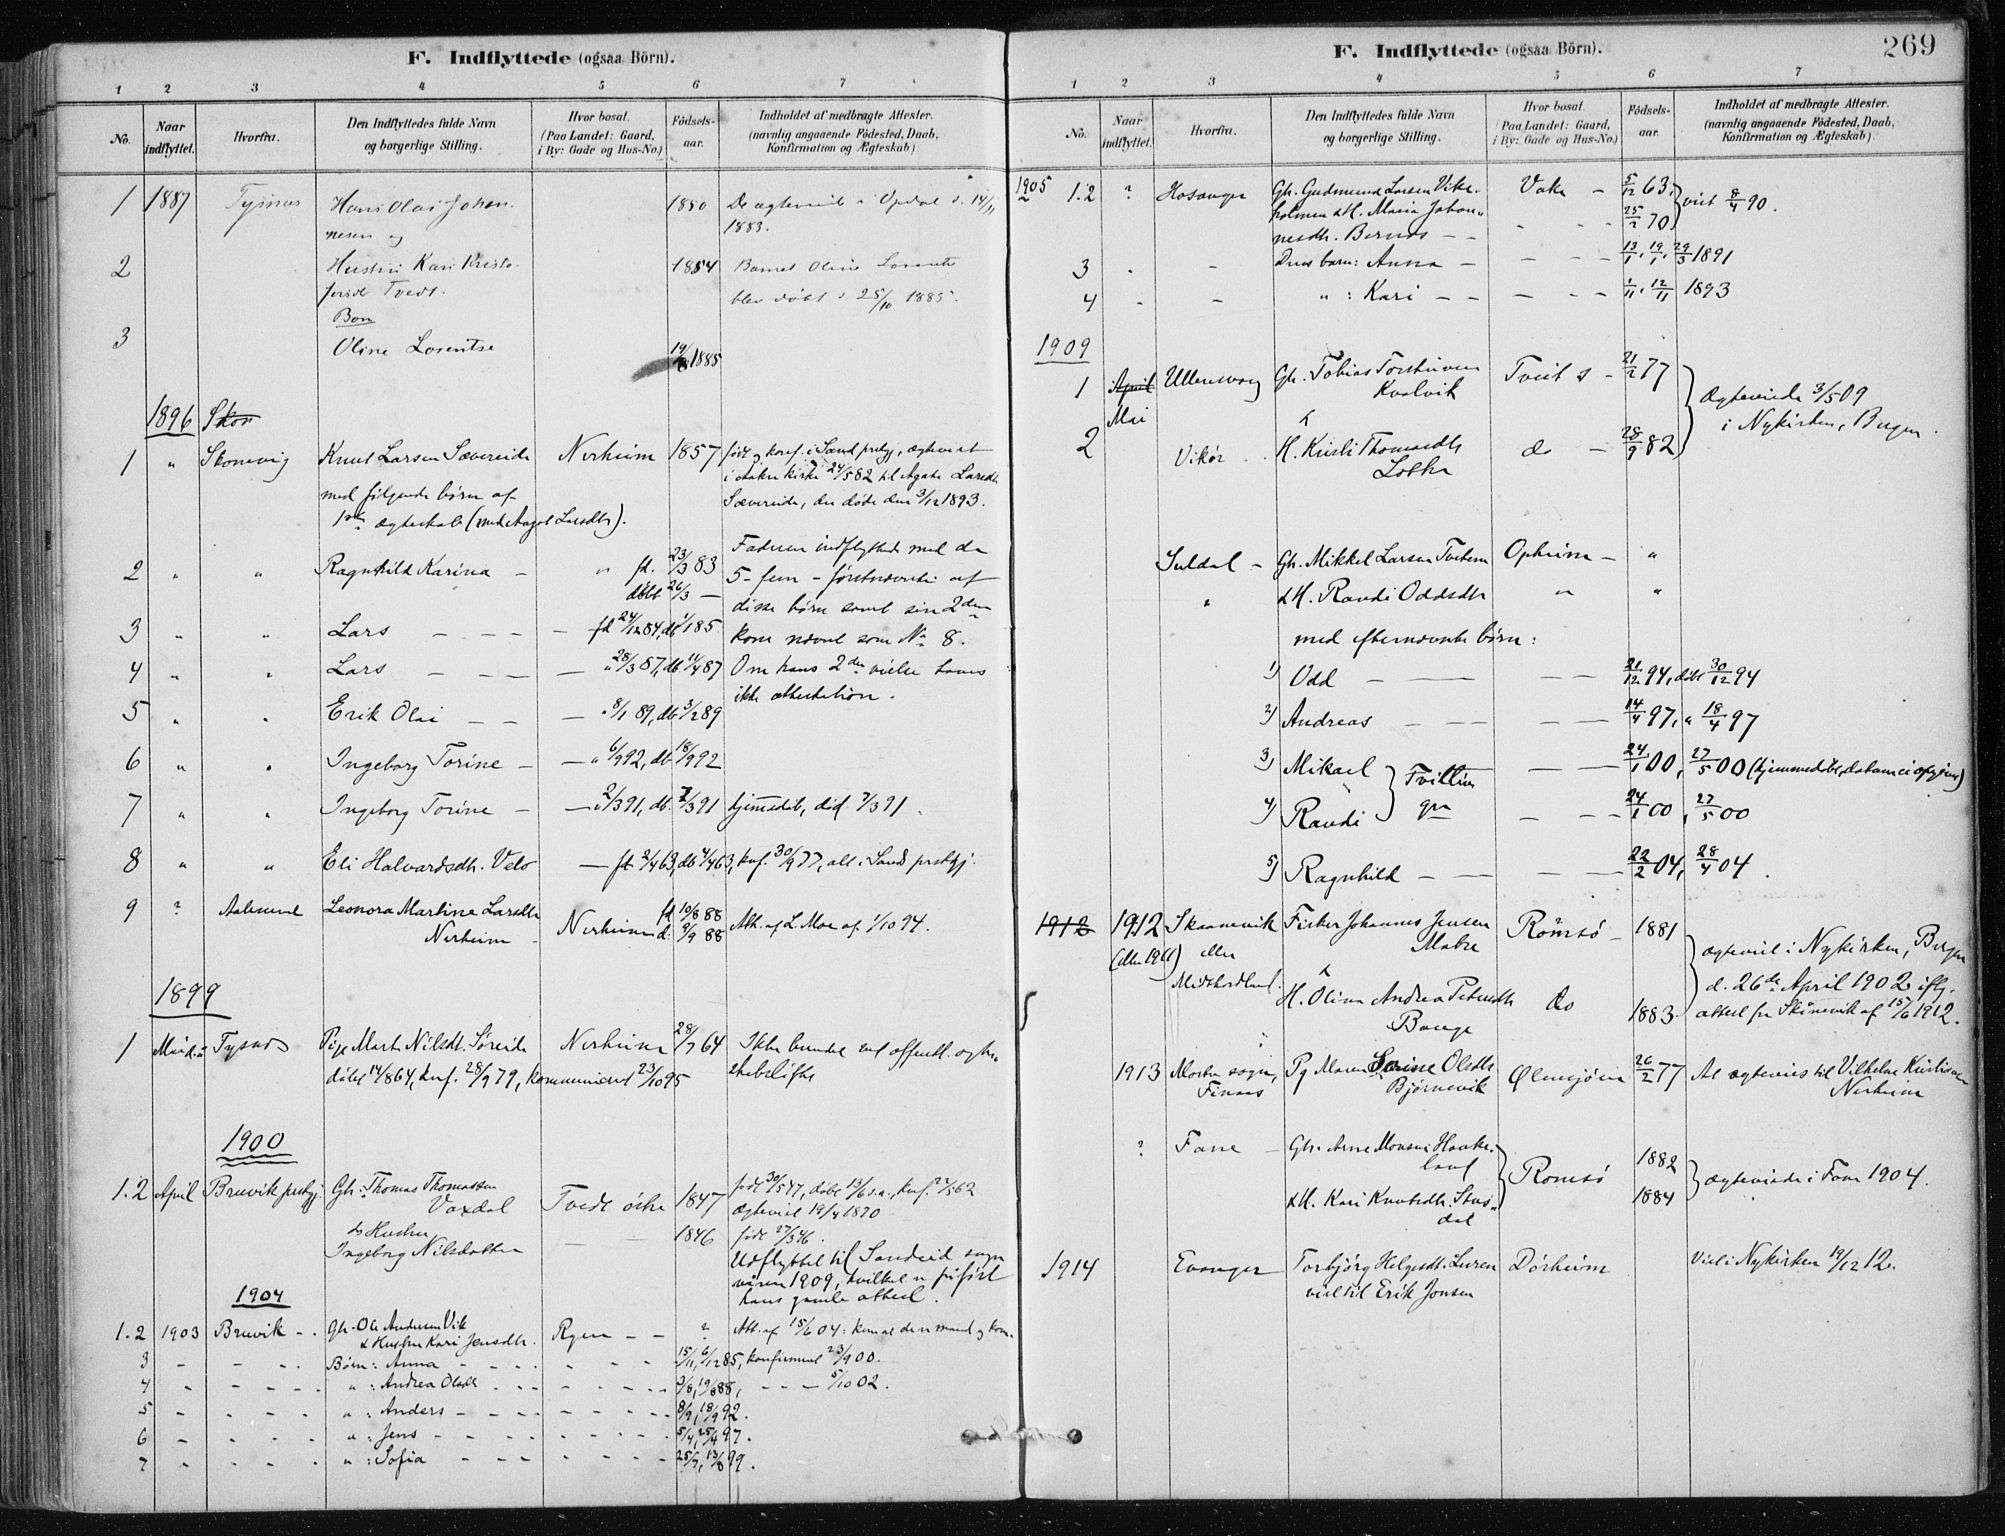 F. Indflyttede (ogsaa Börn).
1 2 3 4 5 6 7
No. Naar indflyttet. Hvorfra. Den Indflyttedes fulde Navn og borgerlige Stilling. Hvor bosat. (Paa Landet: Gaard, i By: Gade og Hus-No.) Födsels-aar. Indholdet af medbragte Attester. (navnlig angaaende Födested, Daab, Konfirmation og Ægteskab).
1 1887 Tysnes Hans Olai Johan- 1850 De ægteviet i Opdal d. 14/11
nesen og 1883.
2 Hustru Kari Kristo- 1854 Barnet Oline Lorentse
fersdt Tvedt. blev døbt d. 25/10 1885.
Børn
3 Oline Lorentse 19/8 1885
1896 Skon
1 " Skonevig Knut Larsen Sævereide Nerheim 1857 født og konf. i Sand prstgj., ægteviet
i Aakre kirke 24/5 82 til Agate Larsdt.
med følgende børn af Sævereide, der døde den 3/12 1893.
1ste ægteskab (med Aagot Larsdtr).
Faderen indflyttede med de
2 " " Ragnhild Karina - " fd. 23/3 83 5 - fem - førstnævnte af
døbt 26/3 - disse børn samt sin 2den
3 " " Lars - - - - fd 24/12 84, db 1/1 85 kone nævnt som No 8.
4 " " Lars - - - - " 28/3 87, db. 11/4 87 Om hans 2den vielse haves
ikke attestation.
5 " " Erik Olai - - - " 8/1 89, db 3/2 89
6 " " Ingeborg Torine - - " 6/9 92, db 18/9 92
7 " " Ingeborg Torine - - " 2/3 91, db. 7/3 91 hjemmedøb., död 7/3 91.
8 " " Eli Halvardsdtr. Velo - fd 2/4 63, db 4/4 63, konf. 30/9 77, alt i Sands prstgj.
9 ? Aalesund Leonora Martine Larsdtr Nerheim fd 10/8 88 Att. af L. Moe af 1/10 94.
Nerheim - d. 9/9 88
1899
1 Tysnes Pige Marta Nilsdt. Søreide Nerheim 28/7 64 Ikke bundet ved offentl. ægte-
døbt 14/8 64, konf. 28/9 79, kommuniceret 23/10 95 skabsløfte
1900
1.2 April Bruvik prstgj. Gbr. Thomas Thomassen Tvedt østre 1847 født 30/5 47, døbt 13/6 s.a., konf.
Vaxdal Ægteviet 19/4 1870
& Hustru 1846 født 27/3 46.
Ingeborg Nilsdatter Udflyttet til Sandeid sogn
våren 1909, hvilket er påført
hans gamle attest.
1904
1.2 1903 Bruvik - . Gbr. Ole Andersen Vik Rygen - - ? Att. af 15/6 04:
& Hustru Kari Jensdtr.
3 - - Børn: Anna - - - 15/11, 6/12 85, konfirmeret 23/9 00.
4 - - " : Andrea Olsdt. - - 3/8, 19/8 88, - - - 5/10 02.
5 - - " : Anders - - - 8/9, 18/9 92.
6 - - " : Jens - - - 5/4, 25/4 97.
7 - - " : Sofia - - - 25/7, 13/8 99.
F. Indflyttede (ogsaa Börn). 269
1 2 3 4 5 6 7
No. Naar indflyttet. Hvorfra. Den Indflyttedes fulde Navn og borgerlige Stilling. Hvor bosat. (Paa Landet: Gaard, i By: Gade og Hus-No.) Födsels-aar. Indholdet af medbragte Attester. (navnlig angaaende Födested, Daab, Konfirmation og Ægteskab).
1905 1.2 ? Hosanger Gbr. Gudmund Larsen Vike- Vaka - 5/12 63. viet 8/4 90.
holmen & H. Maria Johan- 25/2 70
nesdtr. Bernes - -
3 - - Deres barn: Anna - - - 13/1, 19/1, 29/3 1891
4 - - " : Kari - - - - 1/11, 12/11 1893
1909
1 April Ullensvang Gbr. Tobias Torsteinsen Tveit s - 21/2 77 Ægteviede 3/5 09
Mai Kvalvik i Nykirken, Bergen.
&
2 Vikør H. Kristi Thomasdtr do - 28/9 82
Lothe
Suldal - Gbr. Mikkel Larsen Tveitem Opheim - "
" & H. Randi Oddsdtr " "
med efternævnte børn:
1) Odd - - - 21/12 94, døbt 30/12 94
2) Andreas - - - 14/4 97, " 18/4 97
3) Mikael Tvillin- - - 24/1 00, 27/5 00 (hjemmedøbt, datum ei opgivet)
4) Randi ger - - 24/1 00, 27/5 00
5) Ragnhild - - - 22/2 04, 28/4 04.
1912 1912 Skaanevik Fisker Johannes Jensen Romsø - 1881 ægteviet i Nykirken, Bergen
(eller 1911) eller Matre d. 26de April 1902 iflg.
Midthordland. & attest fra Skånevik af 15/6 1912.
H. Olina Andrea Petersdtr do 1883
Bauge
1913 Moster sogn, Pg Maren Serine Olsdtr Ølensjøen 26/2 77 At ægtevies til Vilhelm Kristiansen
Finaas Bjørnevik Nerheim
? Fane - Gbr. Arne Monsen Hauke- Romsø 1882 ægteviede i Fane 1904.
land
& H. Kari Knutsdtr. Stus- 1884
dal
1914 Evanger Torbjörg Helgesdt. Luren Dørheim Viet i Nykirken 19/12 12.
viet til Erik Jonsen